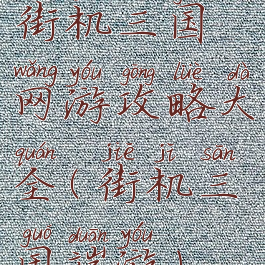 街机三国
wǎng yóu gōng lüè dà
网游攻略大
quán jiē jī sān
全(街机三
guó duān yóu
国端游)